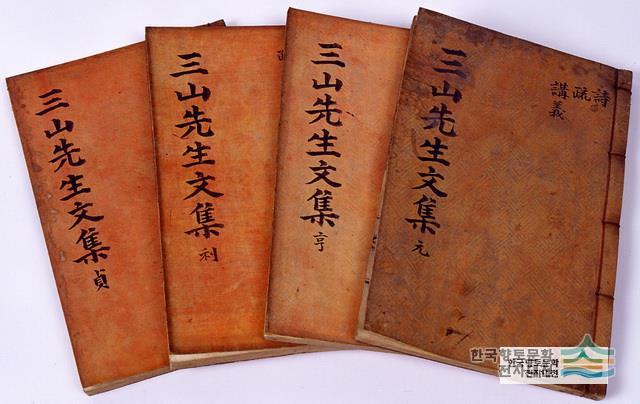 三山先生文集 元
詩
疏
講義
三山先生文集 亨
三山先生文集 利
三山先生文集 貞
한국향토문화
전자대전
한국향토문화
전자대전